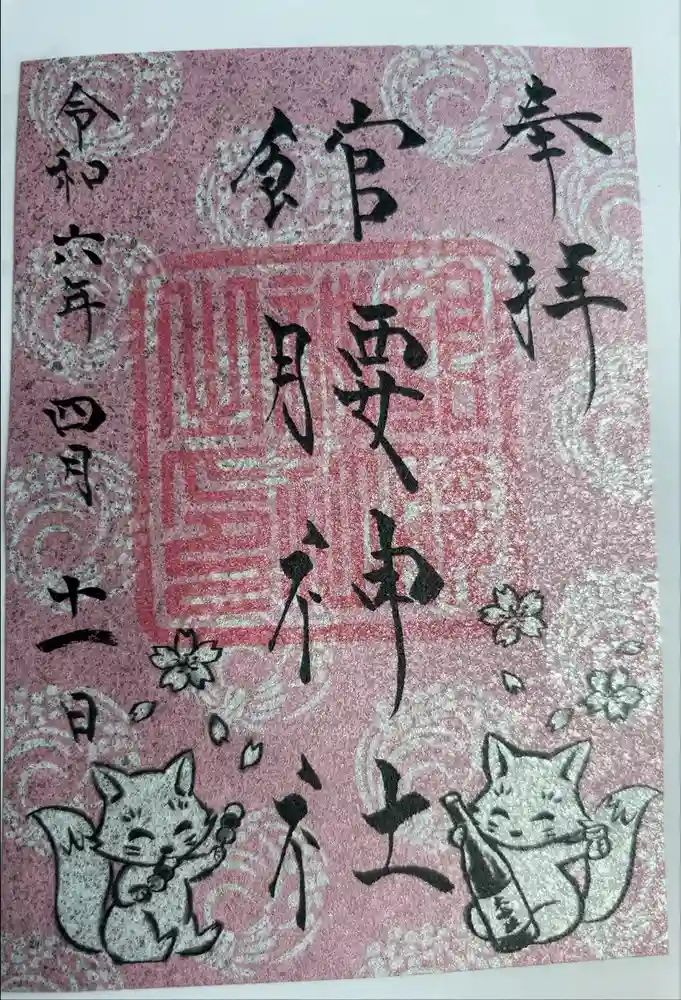 奉拝
館腰神社
令和六年四月十一日